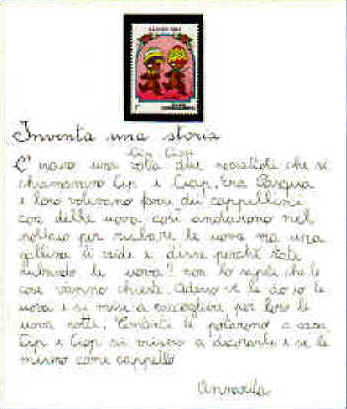 Inventa una storia
Cip Ciop
C'erano una volta due scoiattoli che si
chiamavano Cip e Ciop, era Pasqua
e loro volevano farsi dei cappellini
con delle uova così andarono nel
pollaio per rubare le uova ma una
gallina li vide e disse perché state
rubando le uova? non lo sapete che le
cose vanno chieste. Adesso ve le do io le
uova e si mise a raccogliere per loro le
uova rotte. Contenti le portarono a casa
Cip e Ciop si misero a decorarle e se le
misero come cappello
Annarita